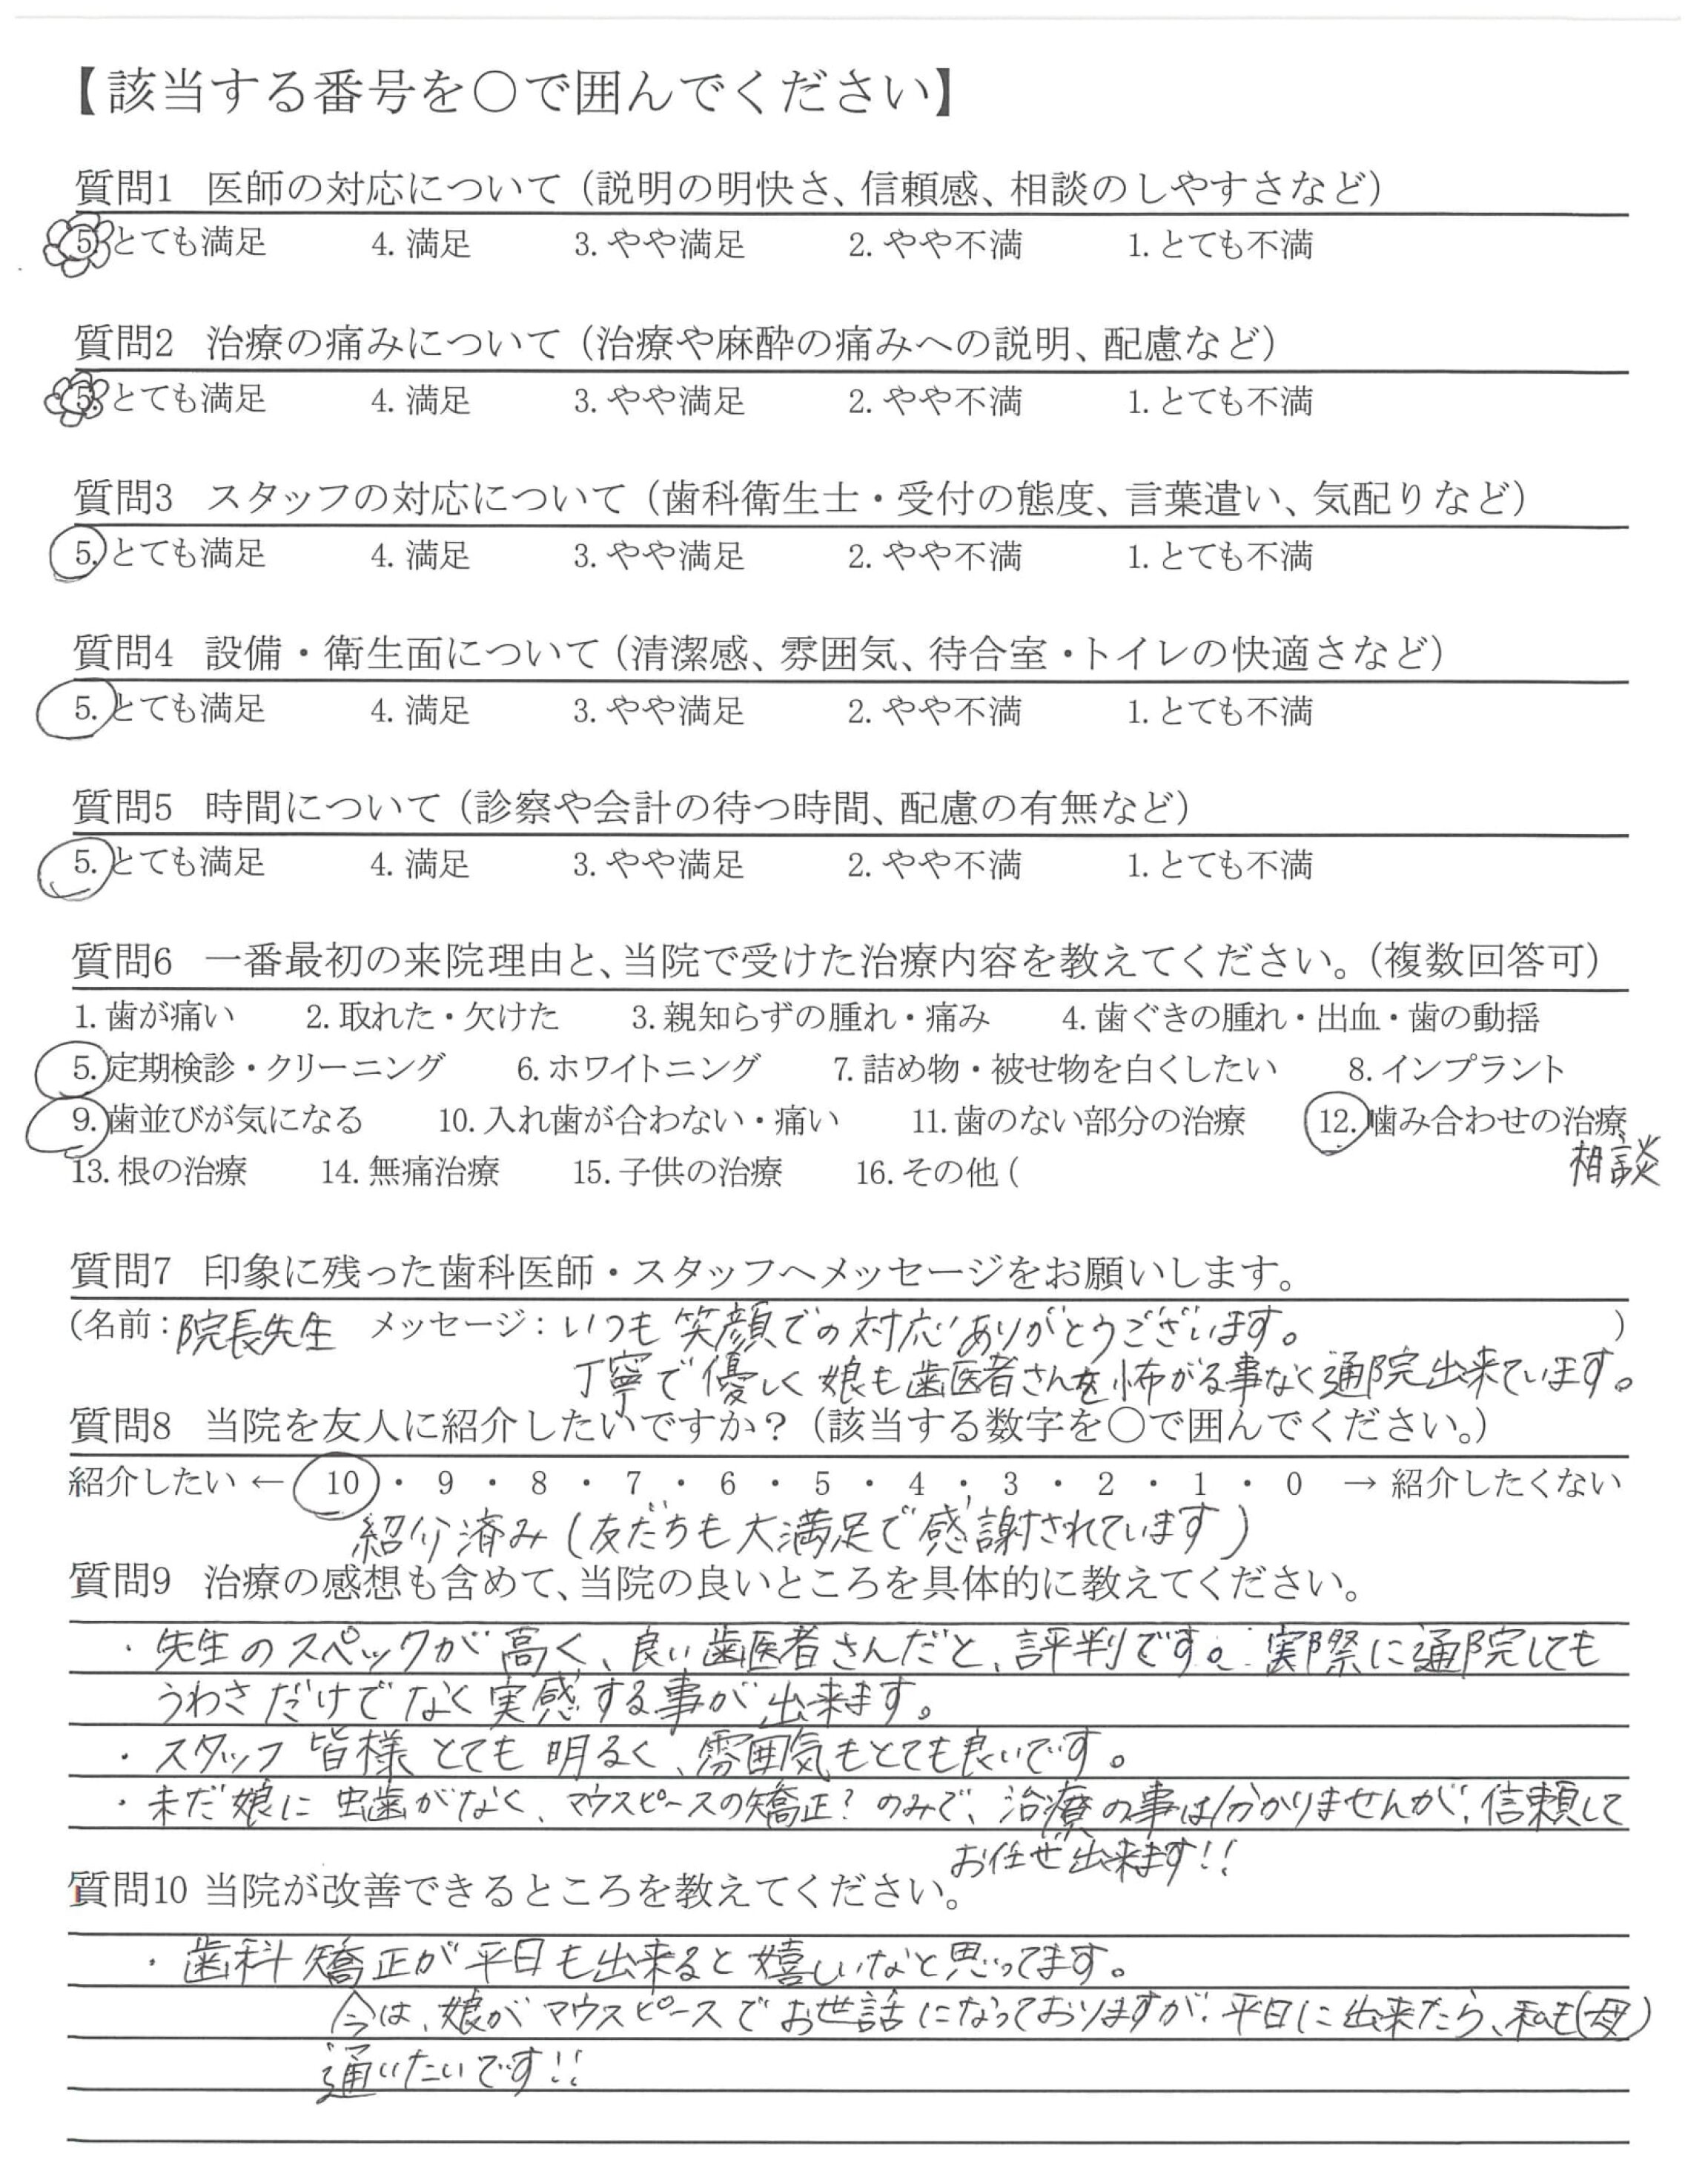 【該当する番号を○で囲んでください】
質問1 医師の対応について（説明の明快さ、信頼感、相談のしやすさなど）
5.とても満足 4.満足 3.やや満足 2.やや不満 1.とても不満
質問2 治療の痛みについて（治療や麻酔の痛みへの説明、配慮など）
5.とても満足 4.満足 3.やや満足 2.やや不満 1.とても不満
質問3 スタッフの対応について（歯科衛生士・受付の態度、言葉遣い、気配りなど）
5.とても満足 4.満足 3.やや満足 2.やや不満 1.とても不満
質問4 設備・衛生面について（清潔感、雰囲気、待合室・トイレの快適さなど）
5.とても満足 4.満足 3.やや満足 2.やや不満 1.とても不満
質問5 時間について（診察や会計の待つ時間、配慮の有無など）
5.とても満足 4.満足 3.やや満足 2.やや不満 1.とても不満
質問6 一番最初の来院理由と、当院で受けた治療内容を教えてください。（複数回答可）
1.歯が痛い 2.取れた・欠けた 3.親知らずの腫れ・痛み 4.歯ぐきの腫れ・出血・歯の動揺
5.定期検診・クリーニング 6.ホワイトニング 7.詰め物・被せ物を白くしたい 8.インプラント
9.歯並びが気になる 10.入れ歯が合わない・痛い 11.歯のない部分の治療 12.噛み合わせの治療
相談
13.根の治療 14.無痛治療 15.子供の治療 16.その他（
質問7 印象に残った歯科医師・スタッフへメッセージをお願いします。
（名前：院長先生 メッセージ：いつも笑顔での対応ありがとうございます。 ）
丁寧で優しく娘も歯医者さんを怖がる事なく通院出来ています。
質問8 当院を友人に紹介したいですか？（該当する数字を○で囲んでください。）
紹介したい ← 10 ・ 9 ・ 8 ・ 7 ・ 6 ・ 5 ・ 4 ・ 3 ・ 2 ・ 1 ・ 0 → 紹介したくない
紹介済み（友だちも大満足で感謝されています）
質問9 治療の感想も含めて、当院の良いところを具体的に教えてください。
・先生のスペックが高く、良い歯医者さんだと、評判です。実際に通院しても
うわさだけでなく実感する事が出来ます。
・スタッフ皆様とても明るく、雰囲気もとても良いです。
・未だ娘に虫歯がなく、マウスピースの矯正？のみで、治療の事は分かりませんが、信頼して
お任せ出来ます!!
質問10 当院が改善できるところを教えてください。
・歯科矯正が平日も出来ると嬉しいなと思ってます。
今は、娘がマウスピースでお世話になっておりますが、平日に出来たら、私も（母）
通いたいです!!